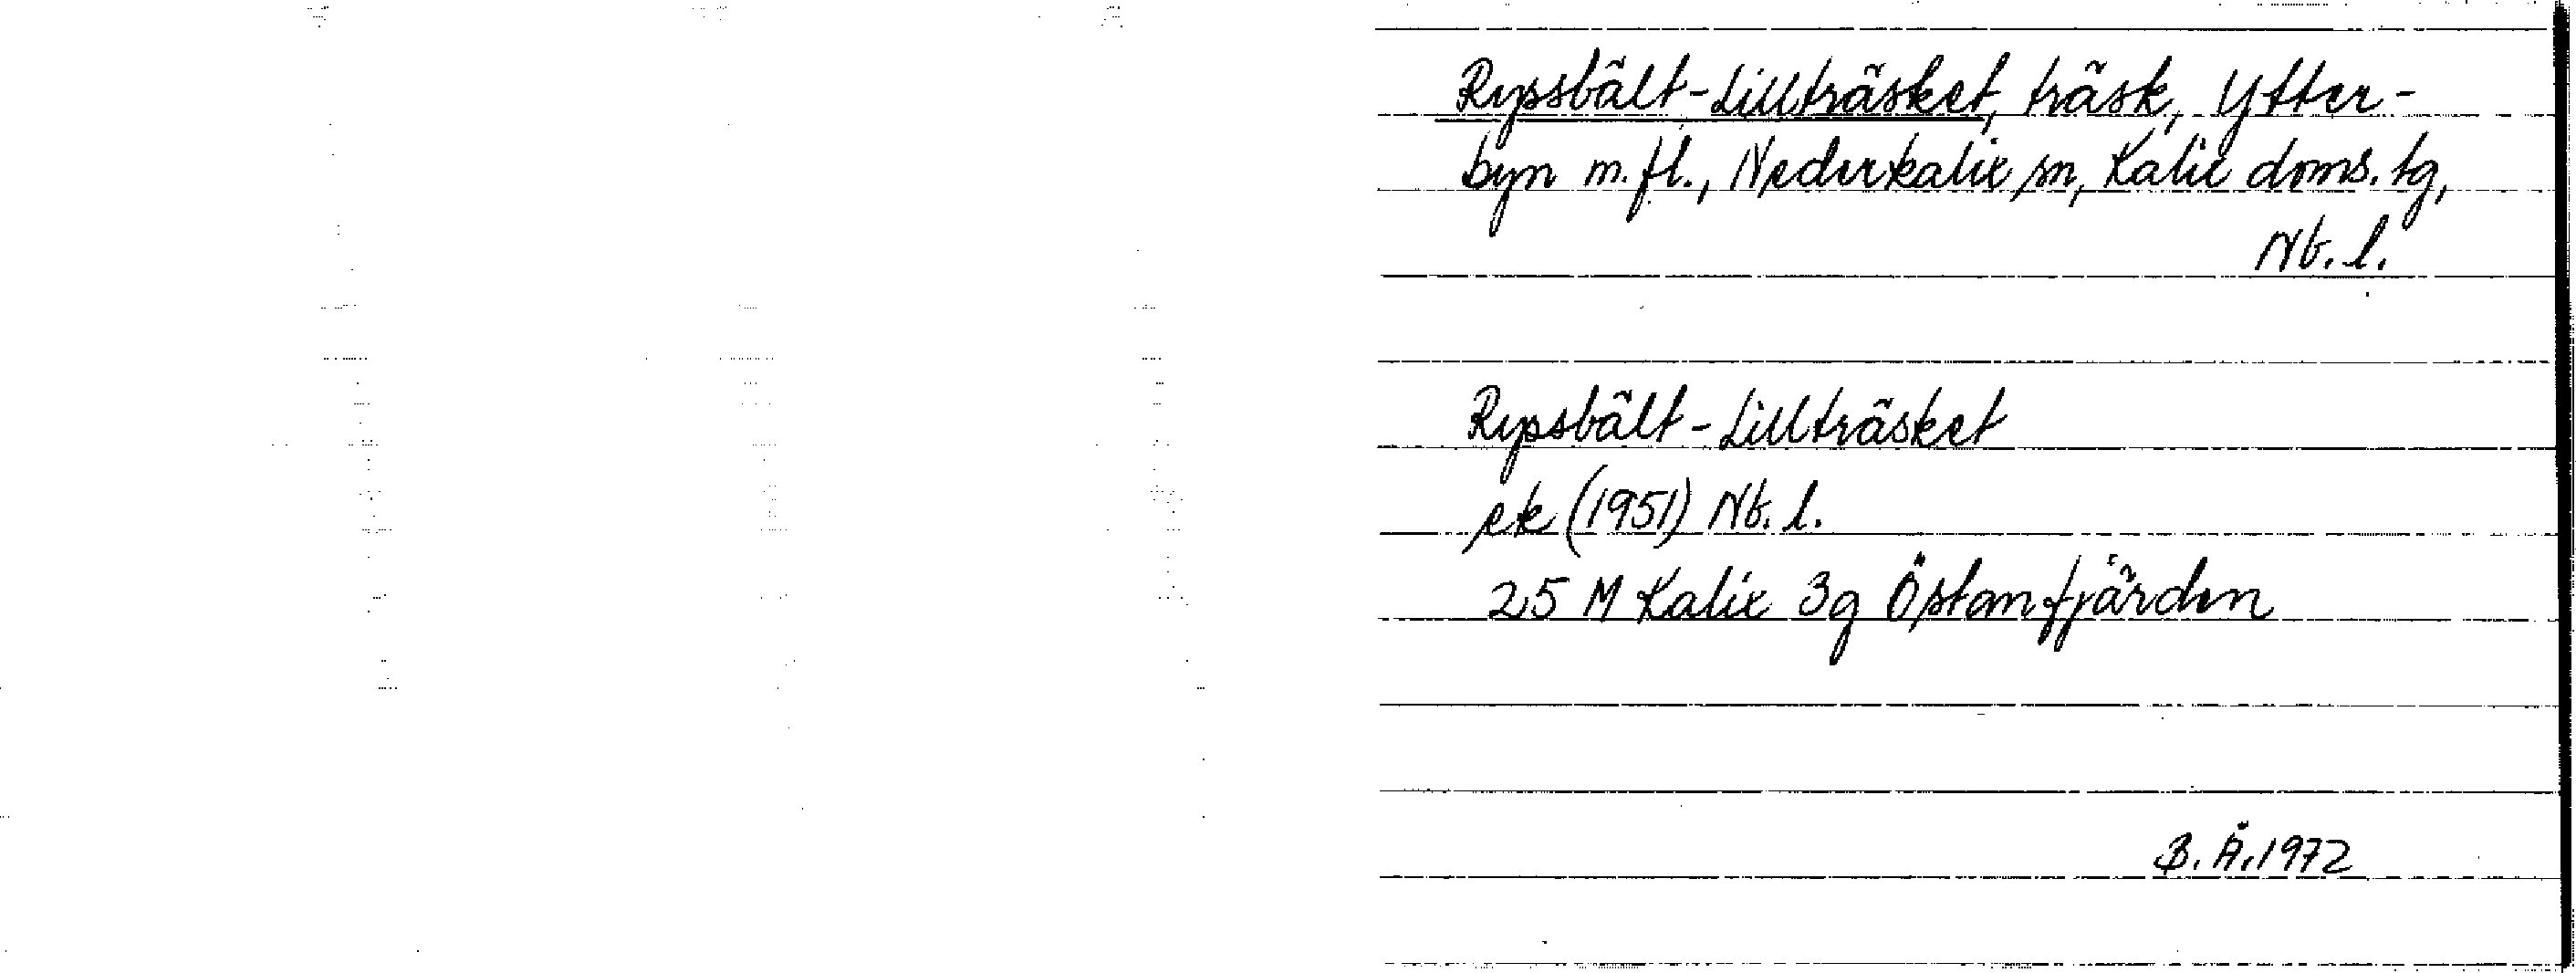 Rypsbält-Lillträsket, träsk, Ytter-
byn m.fl., Nederkalix sn, Kalix doms. tg,
Nb. l.
Rypsbält-Lillträsket
ek (1951) Nb. l.
25 M Kalix 3g Östanfjärden
B. Å. 1972